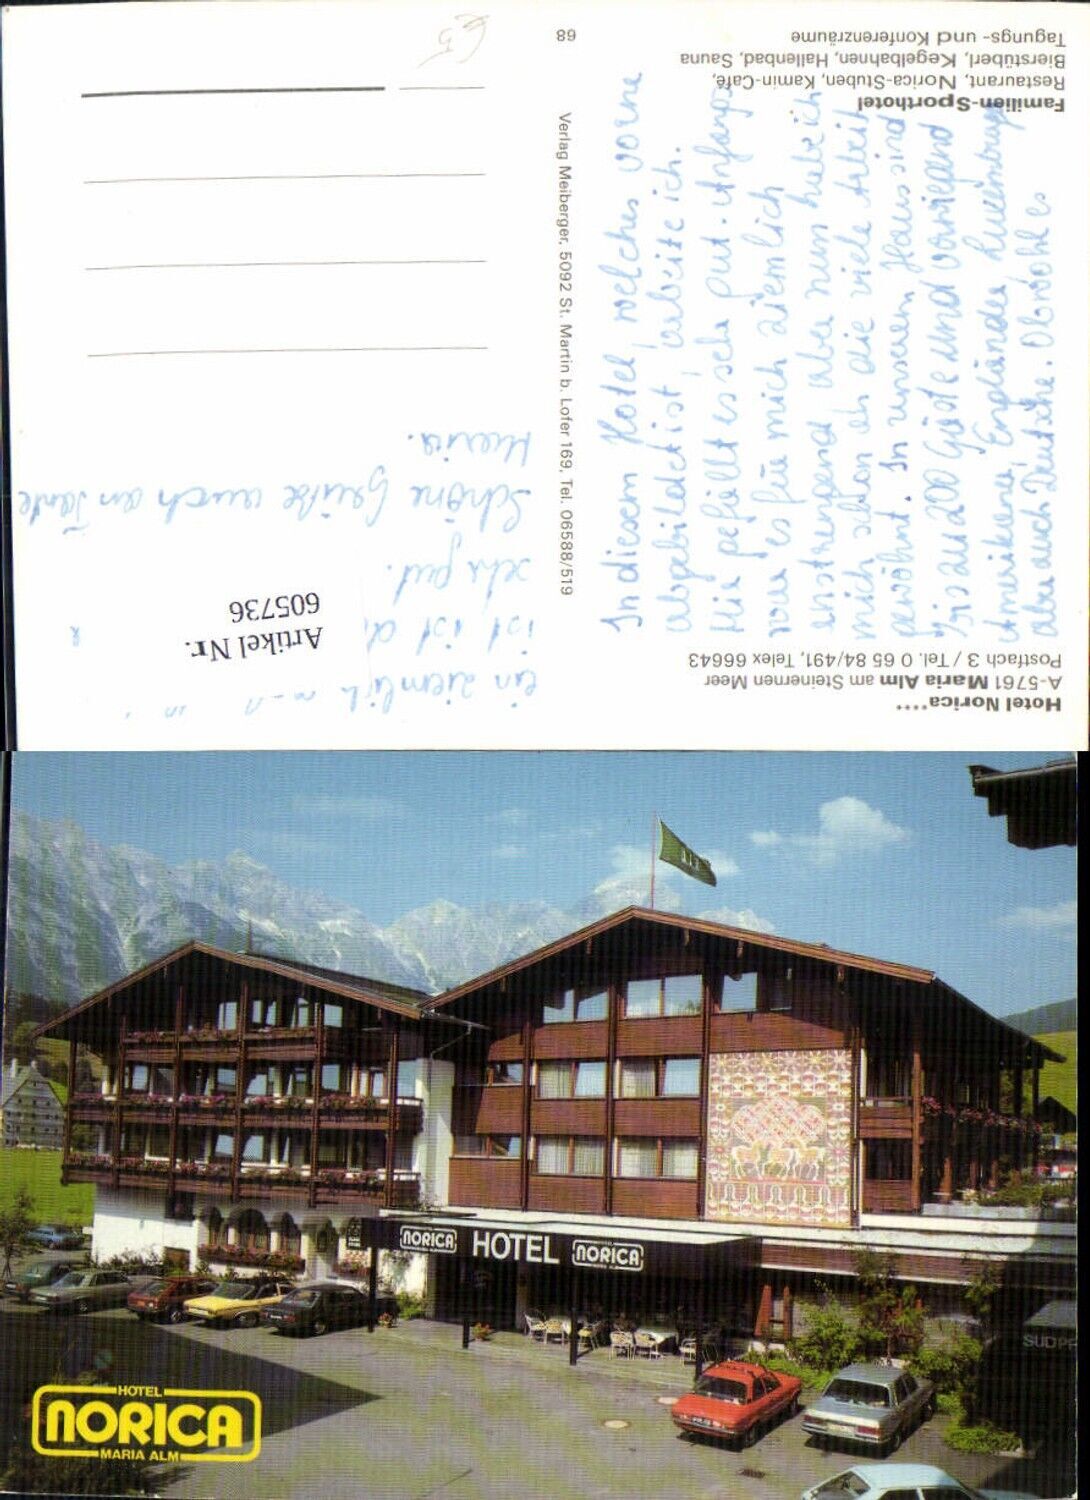 Hotel Norica****
A-5761 Maria Alm am Steinernen Meer
Postfach 3 / Tel. 0 65 84/491, Telex 66643
Familien-Sporthotel
Restaurant, Norica-Stuben, Kamin-Café,
Bierstüberl, Kegelbahnen, Hallenbad, Sauna
Tagungs- und Konferenzräume
68
Verlag Meiberger, 5092 St. Martin b. Lofer 169, Tel. 06588/519
In diesem Hotel, welches vorne
abgebildet ist, arbeite ich.
Mir gefällt es sehr gut. Anfangs
war es für mich ziemlich
anstrengend aber nun habe ich
mich schon an die viele Arbeit
gewöhnt. In unserem Haus sind
bis zu 200 Gäste und vorwiegend
Amerikaner, Engländer, Luxemburger
aber auch Deutsche. Obwohl es
ein ziemlich
ist, ist d
sehr gut.
Schöne Grüße auch an Tante
Maria.
Artikel Nr.
605736
€5
NORICA HOTEL NORICA
SÜDP
HOTEL
NORICA
MARIA ALM